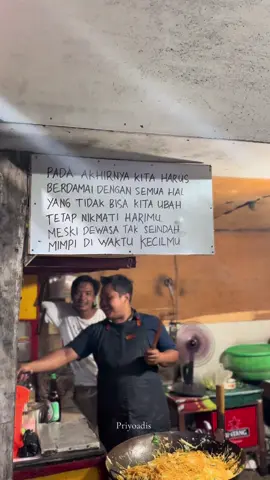 PADA AKHIRNYA KITA HARUS
BERDAMAI DENGAN SEMUA HAL
YANG TIDAK BISA KITA UBAH
TETAP NIKMATI HARIMU
MESKI DEWASA TAK SEINDAH
MIMPI DI WAKTU KECILMU
Priyoadis